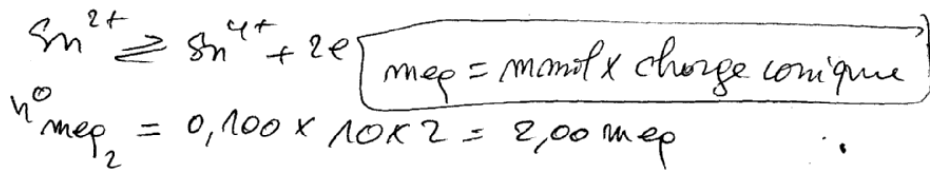 Sn²⁺ ⇌ Sn⁴⁺ + 2e
meq = mmol x charge ionique
n⁰ meq₂ = 0,100 x 10 x 2 = 2,00 meq